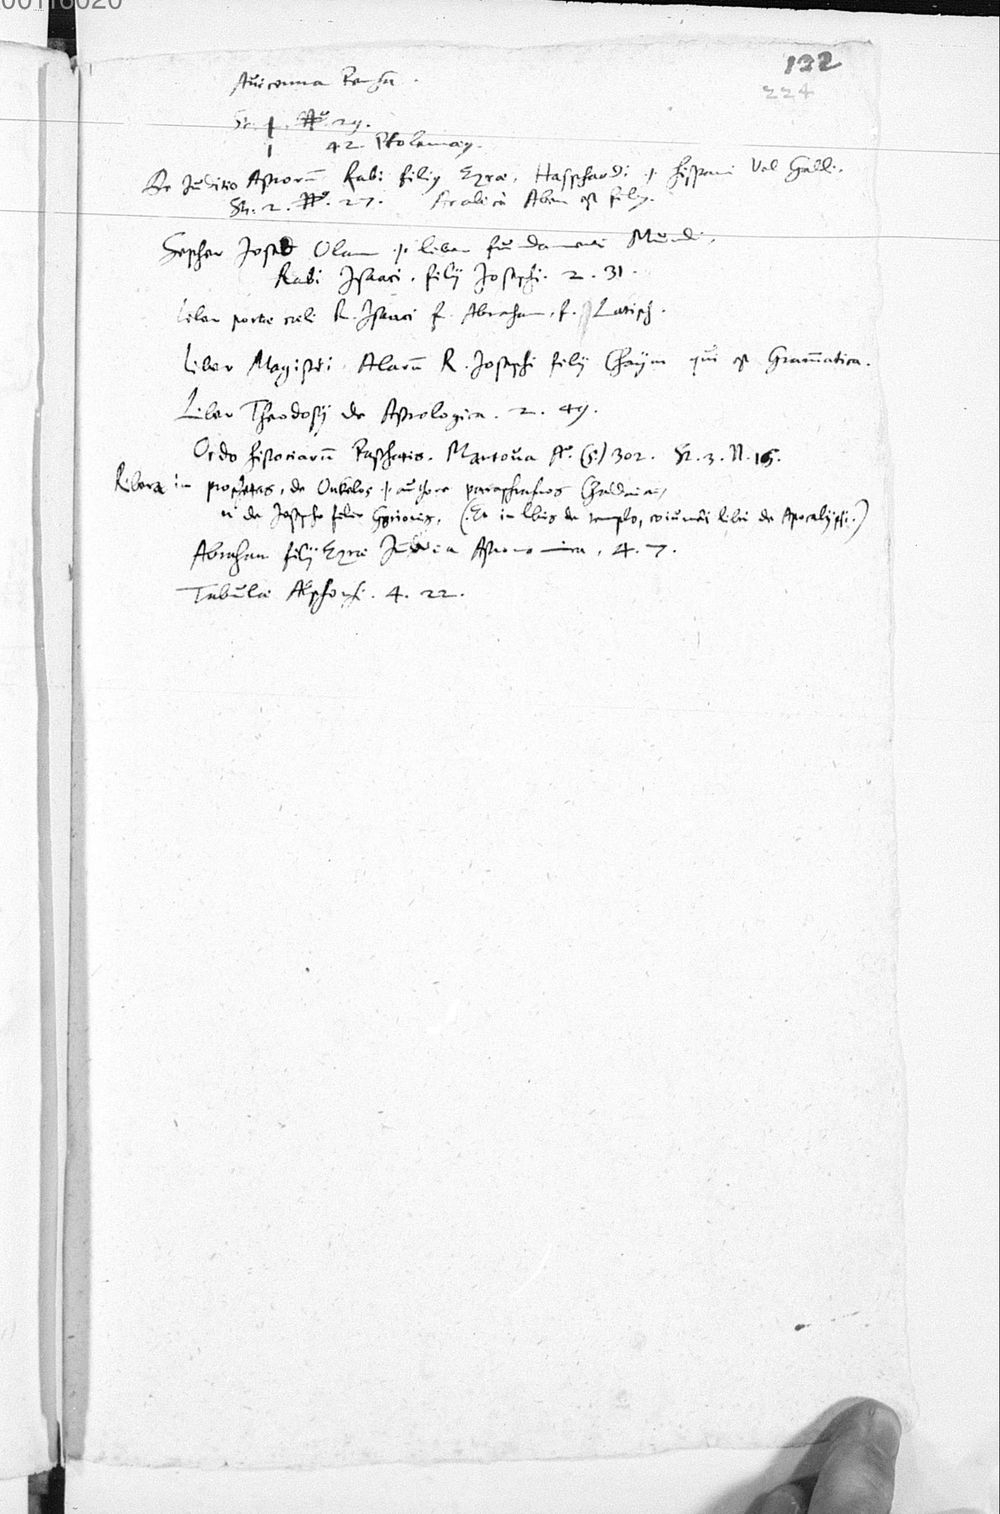 00116020
132
224
Auicenna
St. 1. No. 29.
1 42. Ptolemaeus.
De Juditio Astrorū Rabi filij Ezrae, Hasphardi .i. Hispani Vel Galli.
St. 2. No. 27. Aben est filius.
Sepher Jesod Olam .i. liber fūndamenti Mūndi.
Rabi Isaaci. filij Josephi. 2. 31.
Liber portae caeli R. Isaaci f. Abraham. f. Latiph.
Liber Magistri Alarū R. Josephi filij Chaijm qui est Grammatica.
Liber Theodosij de Astrologia. 2. 49.
Ordo historiarū Mantoūa Aº. (5) 302. St. 3. N. 16.
Ribera in prophetas, de Onkelos .i. authore paraphraseos Chaldaicae,
et de Josepho filio Gorionis, (Et in libris de templo, libri de Apocalypsi.)
Abraham filij Ezrae Jūdicia Astronomica. 4. 7.
Tabūlae Alphonsi. 4. 22.